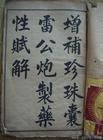 增補珍珠囊
雷公炮製藥
性賦解